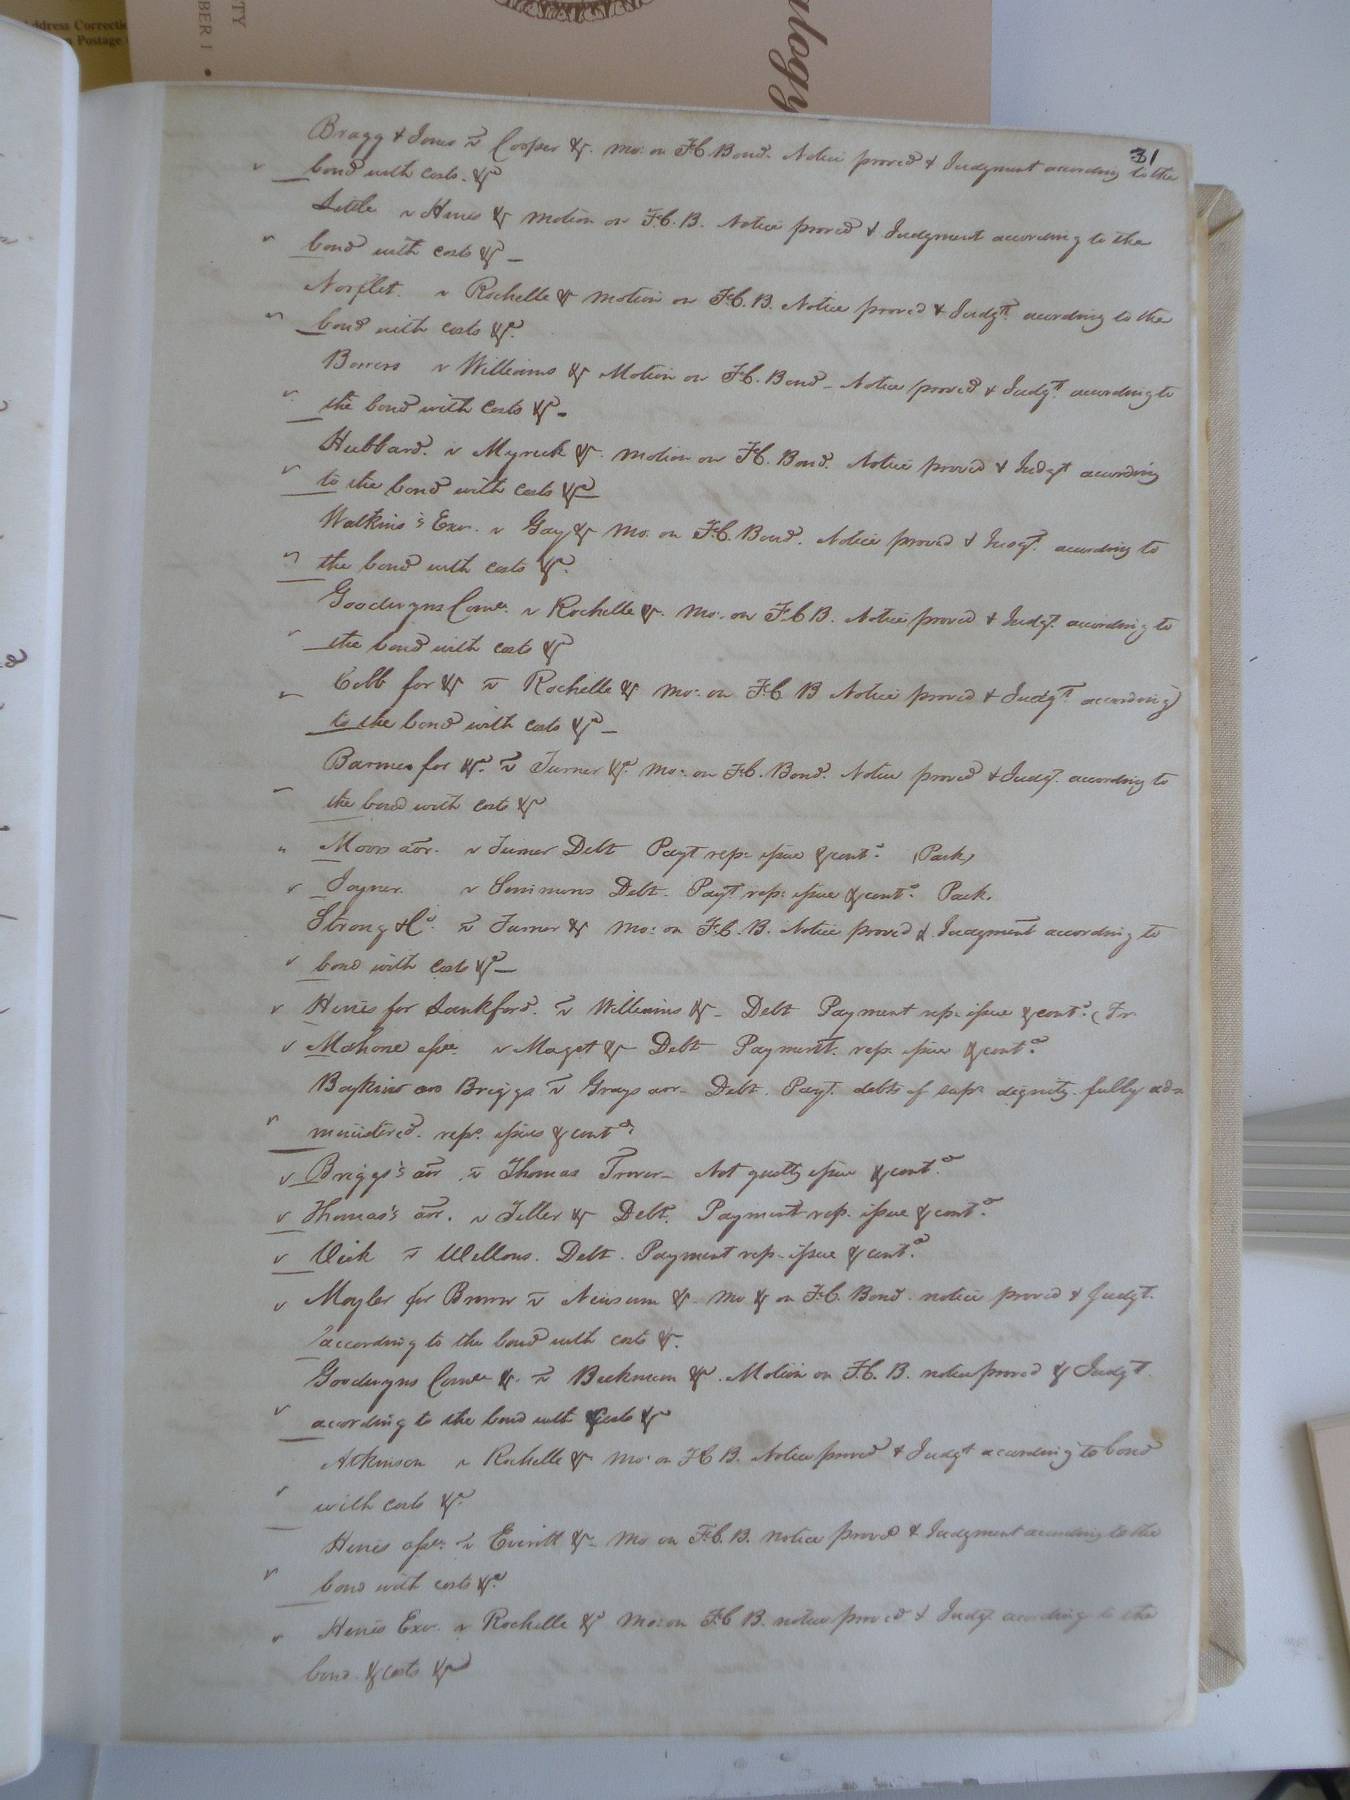 ddress Correctio
n Postage
TY
BER 1 •
ulogy
31
Bragg & Jones vs Cooper &c. Mo: on F.C. Bond. Notice proved & Judgment according to the
bond with costs &c
Little v Hines &c motion on F.C. B. Notice proved & Judgment according to the
bond with costs &c
Norflet. v Rochelle &c motion on F.C. B. Notice proved & Judgt. according to the
bond with costs &c.
v Williams &c Motion on F.C. Bond. Notice proved & Judgt. according to
the bond with costs &c
Hubbard. v Myrick &c. motion on F.C. Bond. Notice proved & Judgt according
to the bond with costs &c
Watkins's Exor. v Gay &c Mo: on F.C. Bond. Notice proved & Judgt. according to
the bond with costs &c.
Goodwyns v Rochelle &c. Mo: on F.C B. Notice proved & Judgt. according to
the bond with costs &c
Cobb for &c vs Rochelle &c Mo: on F.C B Notice proved & Judgt. according
to the bond with costs &c
Barnes for &c. vs Turner &c. Mo: on F.C. Bond. Notice proved & Judgt. according to
the bond with costs &c
Moors aor. v Turner Debt Payt rep: issue & cont.d (Park)
Joyner. v Simmons Debt. Payt. rep: issue & cont.d Park.
Strong & Co. vs Turner &c Mo: on F.C. B. Notice proved & Judgment according to
bond with costs &c
Hines for Lankford. vs Williams &c. Debt Payment rep: issue & cont.d (Tr
Mahone v Maget &c Debt Payment. rep. issue & cont.d
Boykins Briggs vs Grays aor. Debt. Payt. debts of supr. dignity. fully ad
ministered. rep. issues & cont.d
Briggs's aor vs Thomas Trover. Not guilty issue & cont.d
Thomas's aor. v Teller &c Debt. Payment rep. issue & cont.d
Vick vs Wellons. Debt. Payment rep. issue & cont.d
Moyler for Brown vs Newsum &c. Mo &c on F.C. Bond. notice proved & Judgt.
according to the bond with costs &c.
Goodwyns &c. vs Beekman &c. Motion on F.C. B. notice proved & Judgt.
according to the bond with Costs &c
Atkinson v Rochelle &c Mo: on F.C B. Notice proved & Judgt according to bond
with costs &c.
Hines vs Everitt &c. Mo on F.C. B. notice proved & Judgment according to the
bond with costs &c.
Hines Exor. v Rochelle &c Mo: on F.C B. notice proved & Judgt. according to the
bond & costs &c